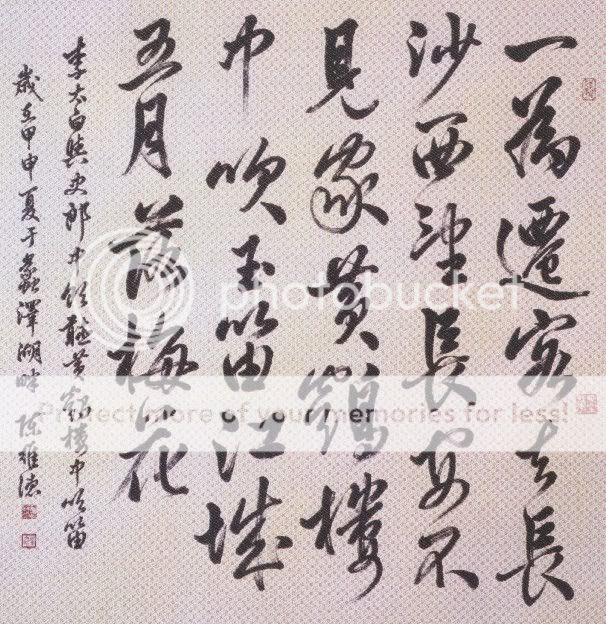 一為遷客去長
沙西望長安不
見家黃鶴樓
中吹玉笛江城
五月落梅花
李太白與史郎中欽聽黃鶴樓中吹笛
歲在甲申夏于蠡澤湖畔 陳雅德
photobucket
Protect more of your memories for less!